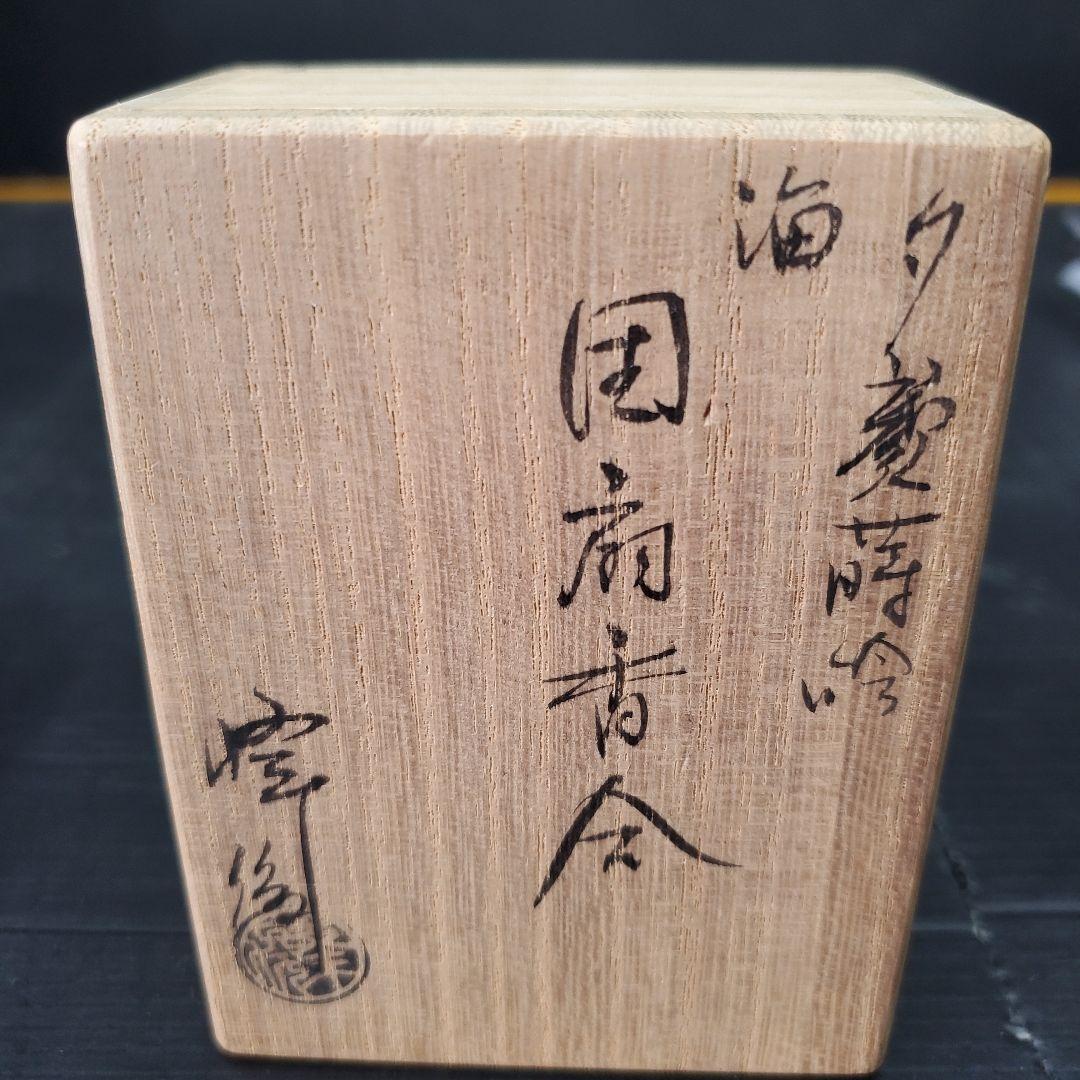 夕顔蒔絵
海
団扇香合